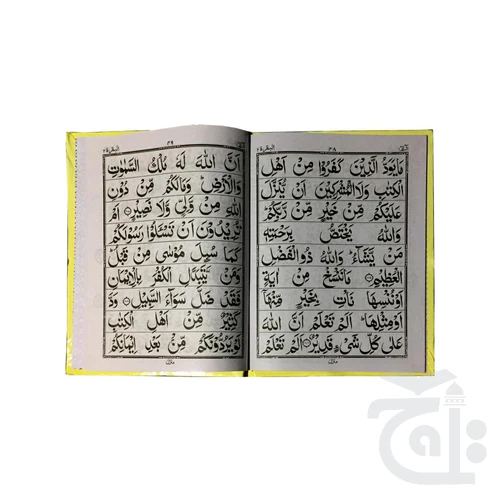 البقرة ٢
٣٨
الٓمّٓ
مَا يَوَدُّ الَّذِيْنَ كَفَرُوْا مِنْ اَهْلِ
الْكِتٰبِ وَلَا الْمُشْرِكِيْنَ اَنْ يُّنَزَّلَ
عَلَيْكُمْ مِّنْ خَيْرٍ مِّنْ رَّبِّكُمْ
وَاللّٰهُ يَخْتَصُّ بِرَحْمَتِهٖ
مَنْ يَّشَآءُ وَاللّٰهُ ذُو الْفَضْلِ
الْعَظِيْمِ مَا نَنْسَخْ مِنْ اٰيَةٍ
اَوْ نُنْسِهَا نَاْتِ بِخَيْرٍ مِّنْهَا
اَوْ مِثْلِهَا اَلَمْ تَعْلَمْ اَنَّ اللّٰهَ
عَلٰى كُلِّ شَيْءٍ قَدِيْرٌ اَلَمْ تَعْلَمْ
منزل
البقرة ٢
٣٩
الٓمّٓ
اَنَّ اللّٰهَ لَهٗ مُلْكُ السَّمٰوٰتِ
وَالْاَرْضِ وَمَا لَكُمْ مِّنْ دُوْنِ
اللّٰهِ مِنْ وَّلِيٍّ وَّلَا نَصِيْرٍ اَمْ
تُرِيْدُوْنَ اَنْ تَسْـَٔلُوْا رَسُوْلَكُمْ
كَمَا سُىِٕلَ مُوْسٰى مِنْ قَبْلُ
وَمَنْ يَّتَبَدَّلِ الْكُفْرَ بِالْاِيْمَانِ
فَقَدْ ضَلَّ سَوَآءَ السَّبِيْلِ وَدَّ
كَثِيْرٌ مِّنْ اَهْلِ الْكِتٰبِ
لَوْ يَرُدُّوْنَكُمْ مِّنْ بَعْدِ اِيْمَانِكُمْ
منزل